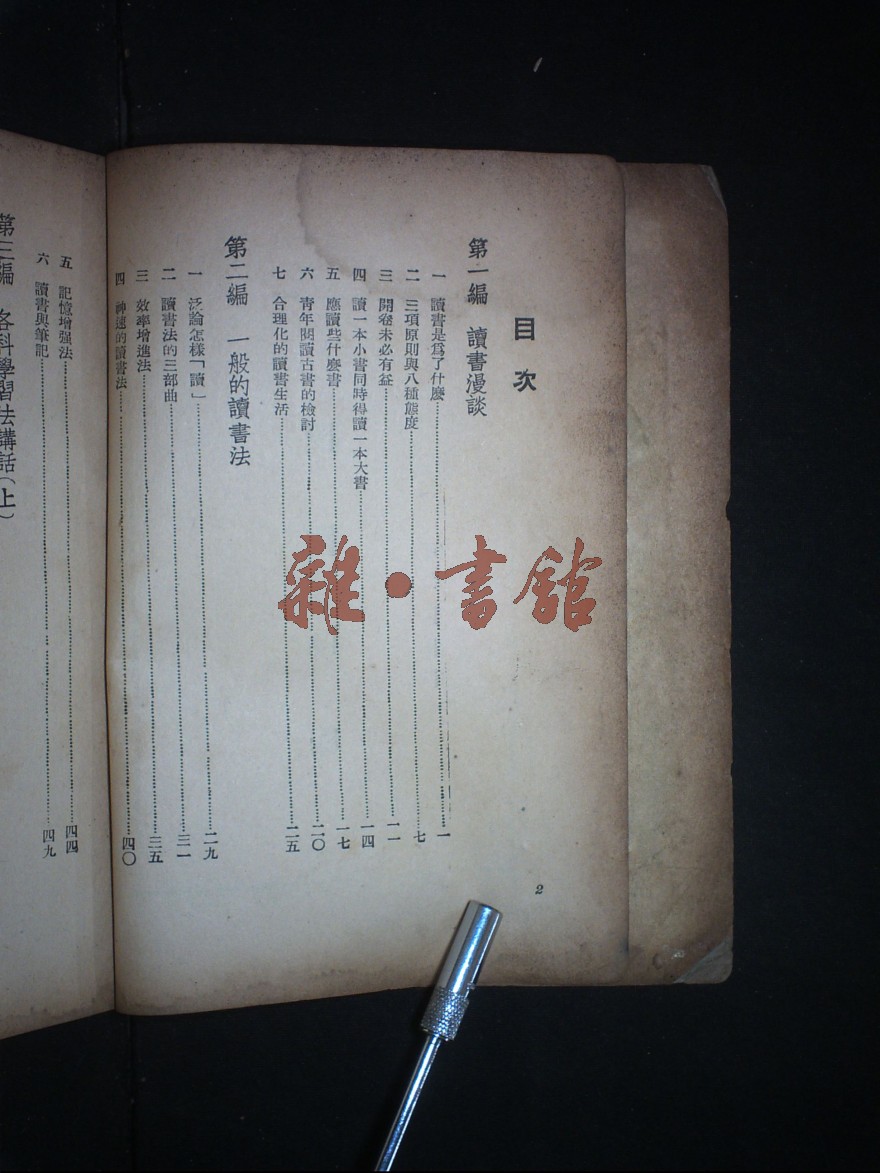 目次
第一編 讀書漫談
一 讀書是爲了什麼………一
二 三項原則與八種態度………七
三 開卷未必有益………一一
四 讀一本小書同時得讀一本大書………一四
五 應讀些什麼書………一七
六 青年閱讀古書的檢討………二〇
七 合理化的讀書生活………二五
第二編 一般的讀書法
一 泛論怎樣「讀」………二九
二 讀書法的三部曲………三一
三 效率增進法………三五
四 神速的讀書法………四〇
2
五 記憶增强法………四四
六 讀書與筆記………四九
第三編 各科學習法講話(上)
雜·書館